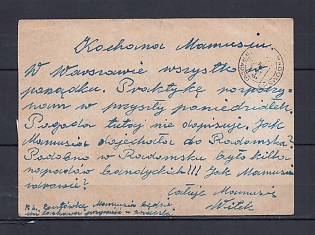 Kochana Mamusiu.
W Warszawie wszystko w
porządku. Praktykę rozpoczy-
nam w przyszły poniedziałek.
Pogoda tutaj nie dopisuje. Jak
Mamusia dojechała do Radomska?
Podobno w Radomsku było kilka
napadów bandyckich!!! Jak Mamusi
zdrowie?
Całuję Mamusię
Witek
P.S. Mamusia będzie